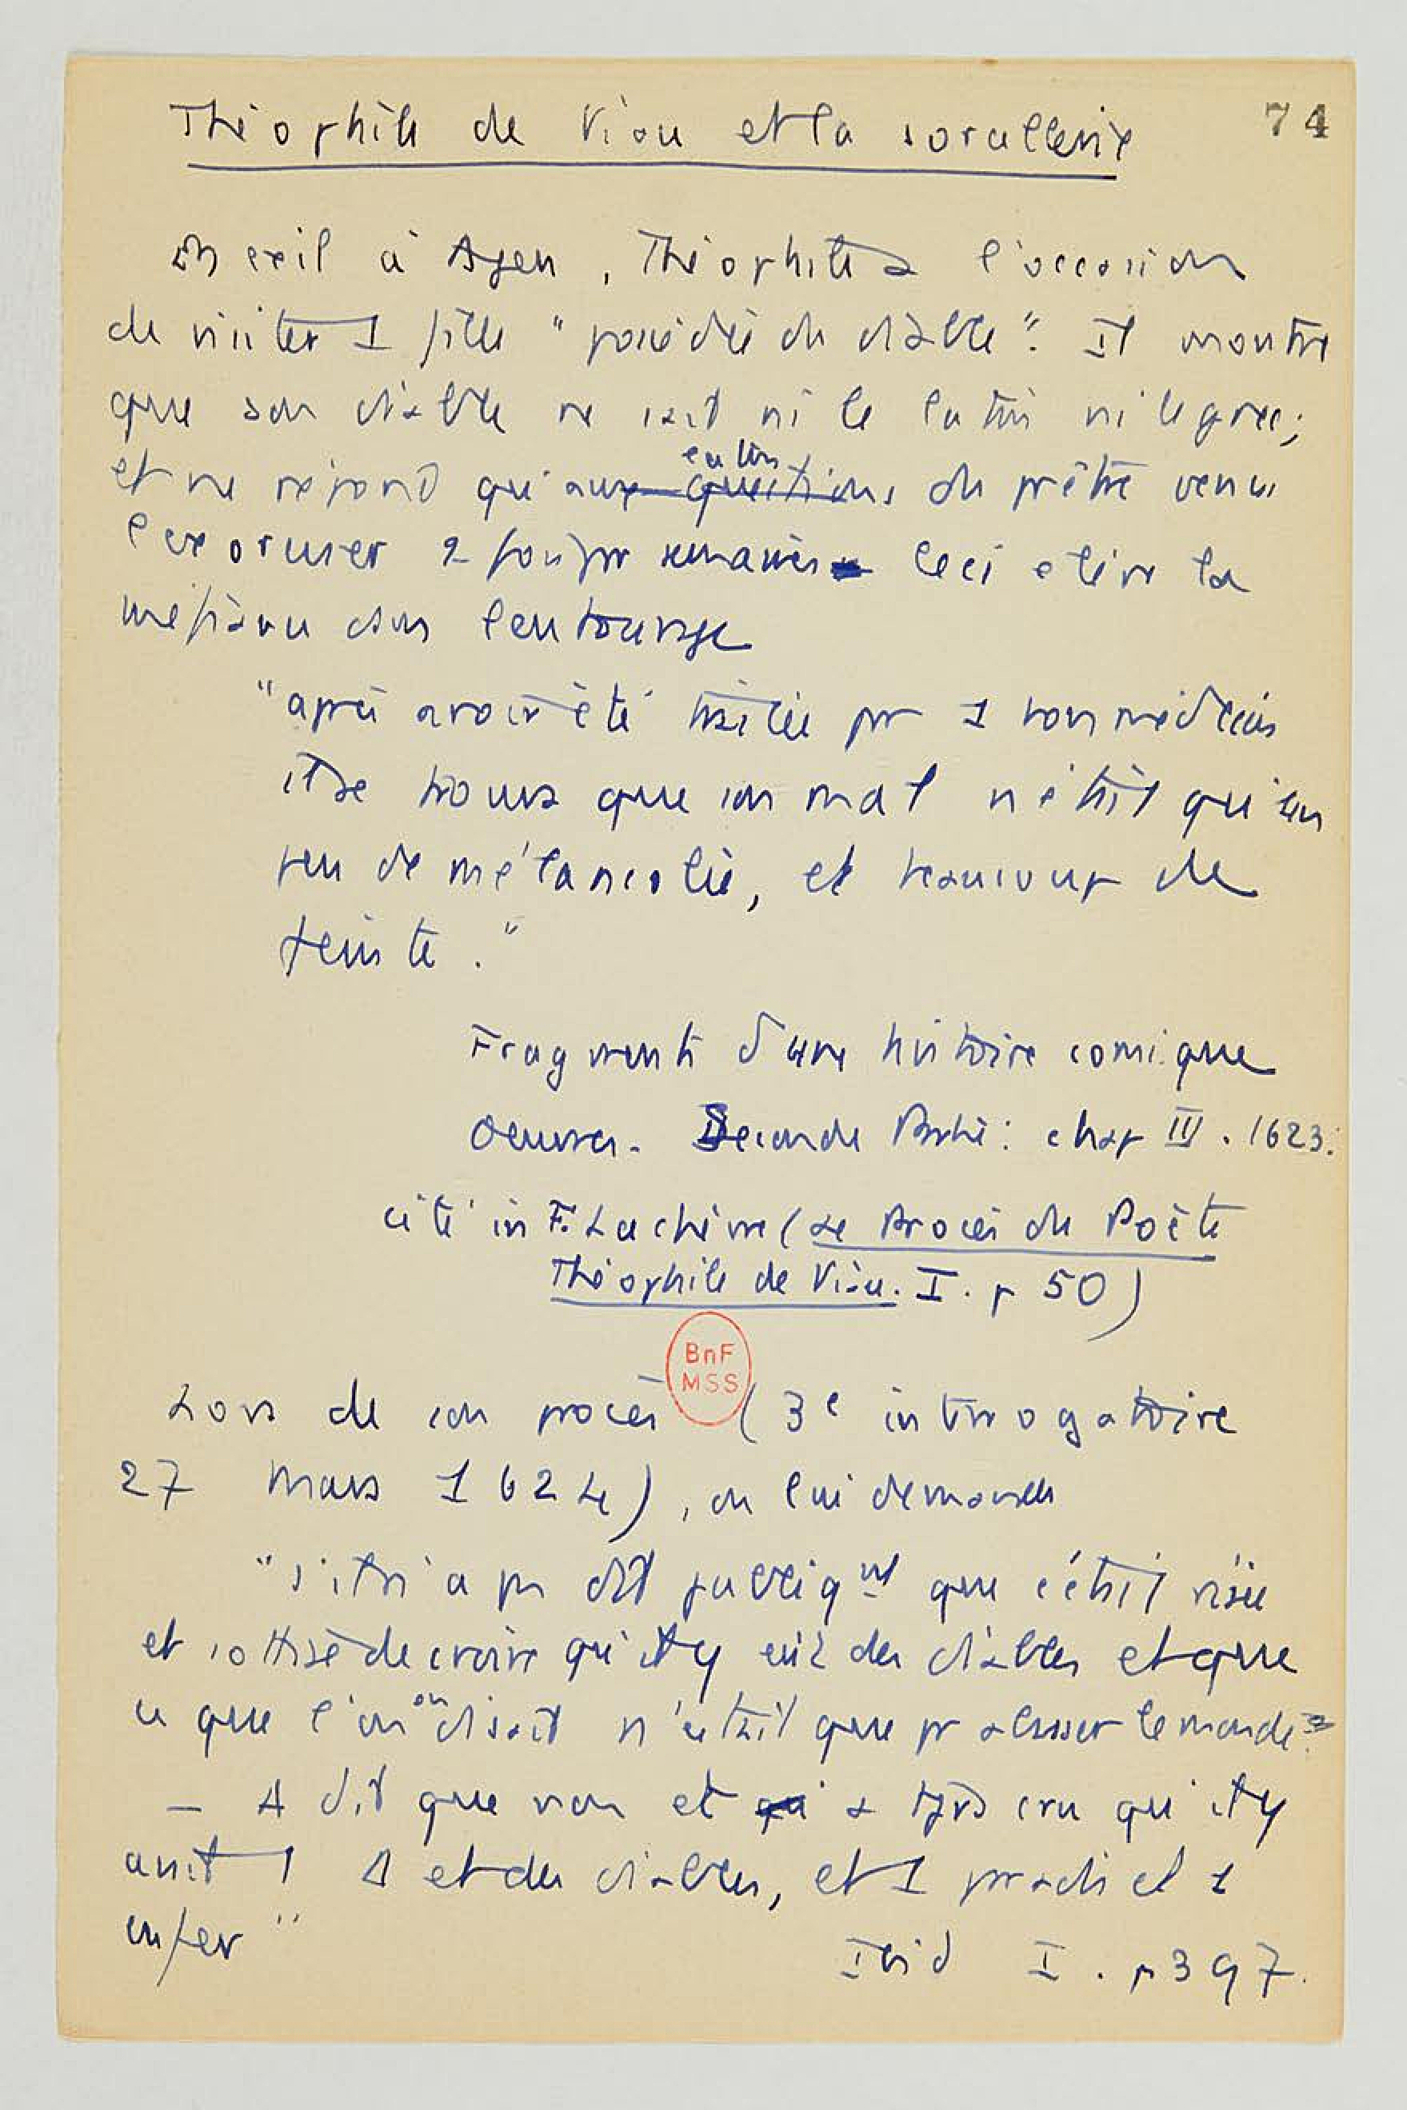 74
Théophile de Viau et la sorcellerie
En exil à Agen, Théophile a l'occasion
de visiter 1 fille "possédée du diable". Il montre
que son diable ne sait ni le latin ni le grec;
et ne répond qu'aux questions du prêtre venu
l'exorciser 2 fois par semaine. Ceci
méfiance dans l'entourage
"après avoir été traitée pr 1 bon médecin
il se trouva que son mal n'était qu'un
peu de mélancolie, et beaucoup de
feinte."
Fragments d'une histoire comique
Oeuvres. Seconde Partie: chap III. 1623.
cité in F. Lachèvre (Le Procès du Poète
Théophile de Viau. I. p 50)
BnF
MSS
Lors de son procès (3e interrogatoire
27 Mars 1624), on lui demande
"s'il n'a pas dit publiqnt que c'était
et sottise de croire qu'il y eût des diables et que
ce que l'on en disait n'était que pr abuser le monde
— A dit que non et qu a tjrs cru qu'il y
avait 1 Δ et des diables, et 1 paradis et 1
enfer"
Ibid I. p 397.